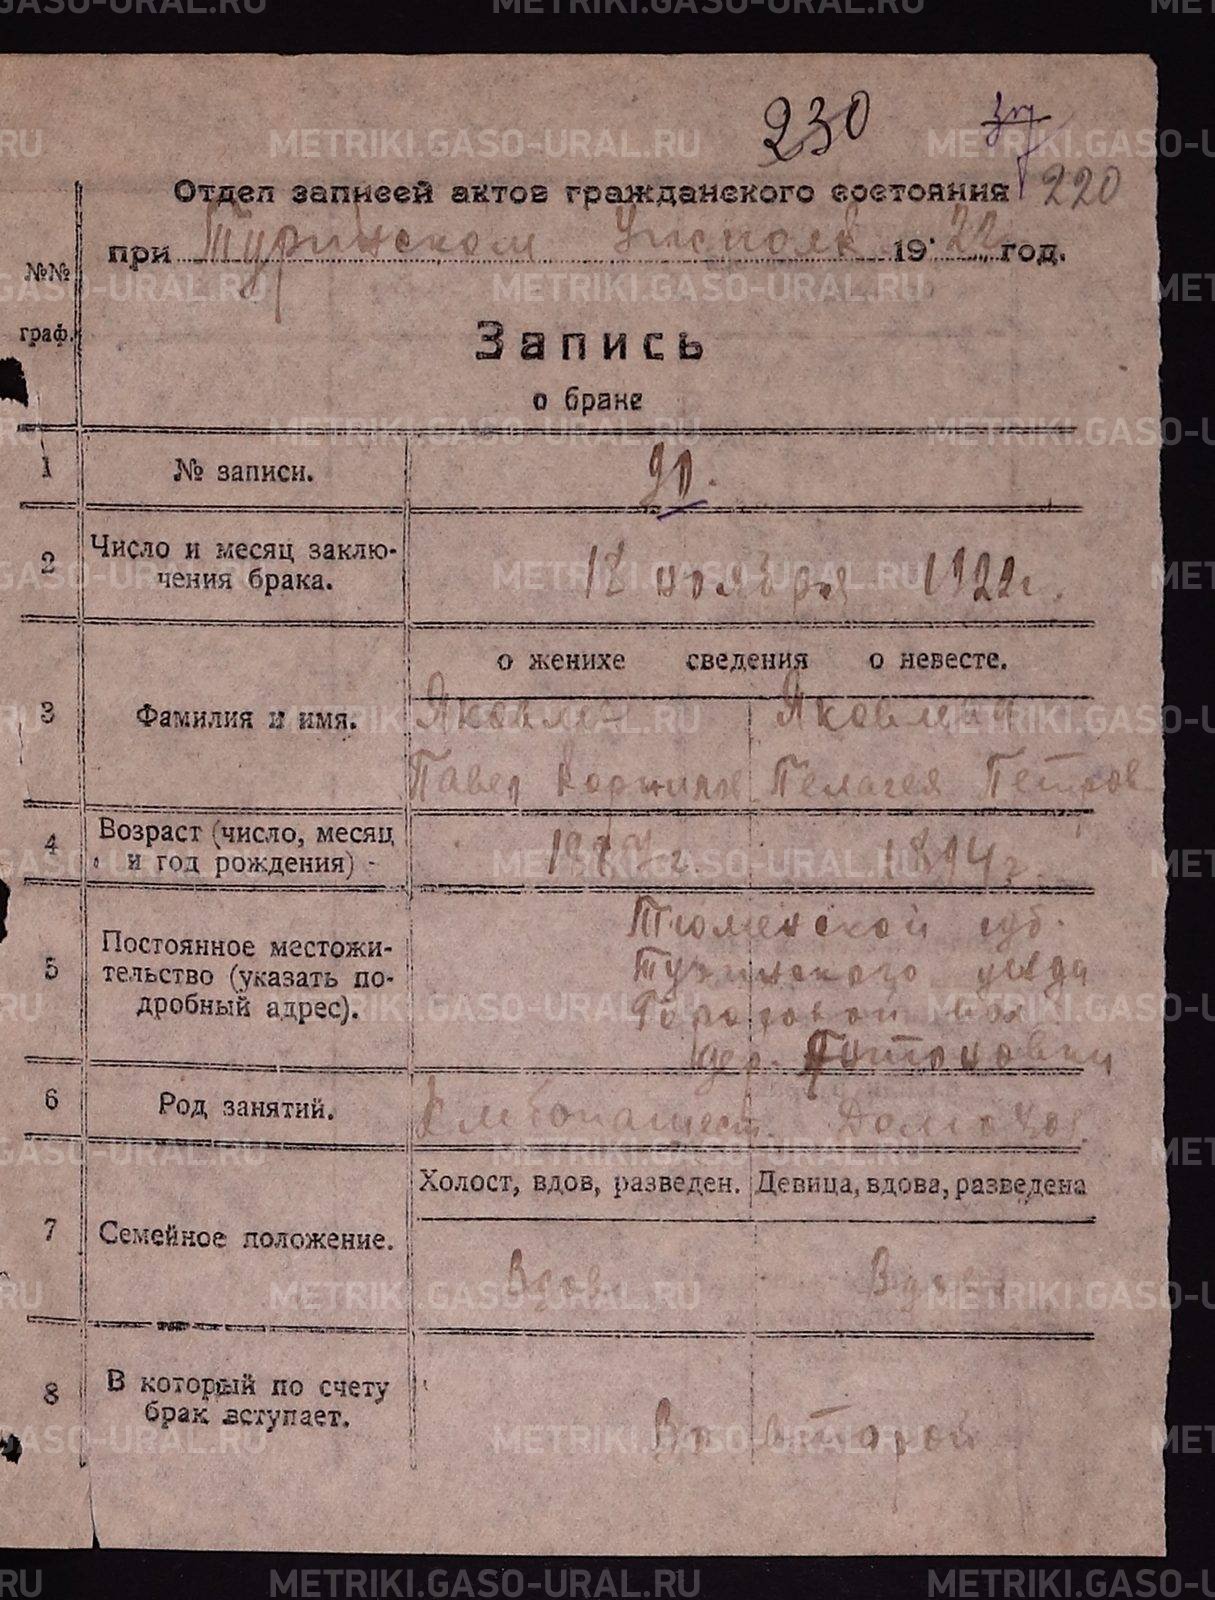 230
220
Отдел записей актов гражданского состояния
при Туринском Уисполк 1922 год.
№№
граф.
Запись
о браке
1 № записи. 90.
2 Число и месяц заклю-
чения брака. 18 ноября 1922 г.
о женихе сведения о невесте.
3 Фамилия и имя. Яковлев Яковлева
Павел Корнилов Пелагея Петров
4 Возраст (число, месяц
и год рождения) - 1894 г.
Тюменской губ.
5 Постоянное местожи-
тельство (указать по-
дробный адрес). Туринского уезда
Городовой вол.
дер.
6 Род занятий. Хлебопашест. Домохоз.
Холост, вдов, разведен. Девица, вдова, разведена
7 Семейное положение.
Вдов Вдова
8 В который по счету
брак вступает. Во второй
METRIKI.GASO-URAL.RU